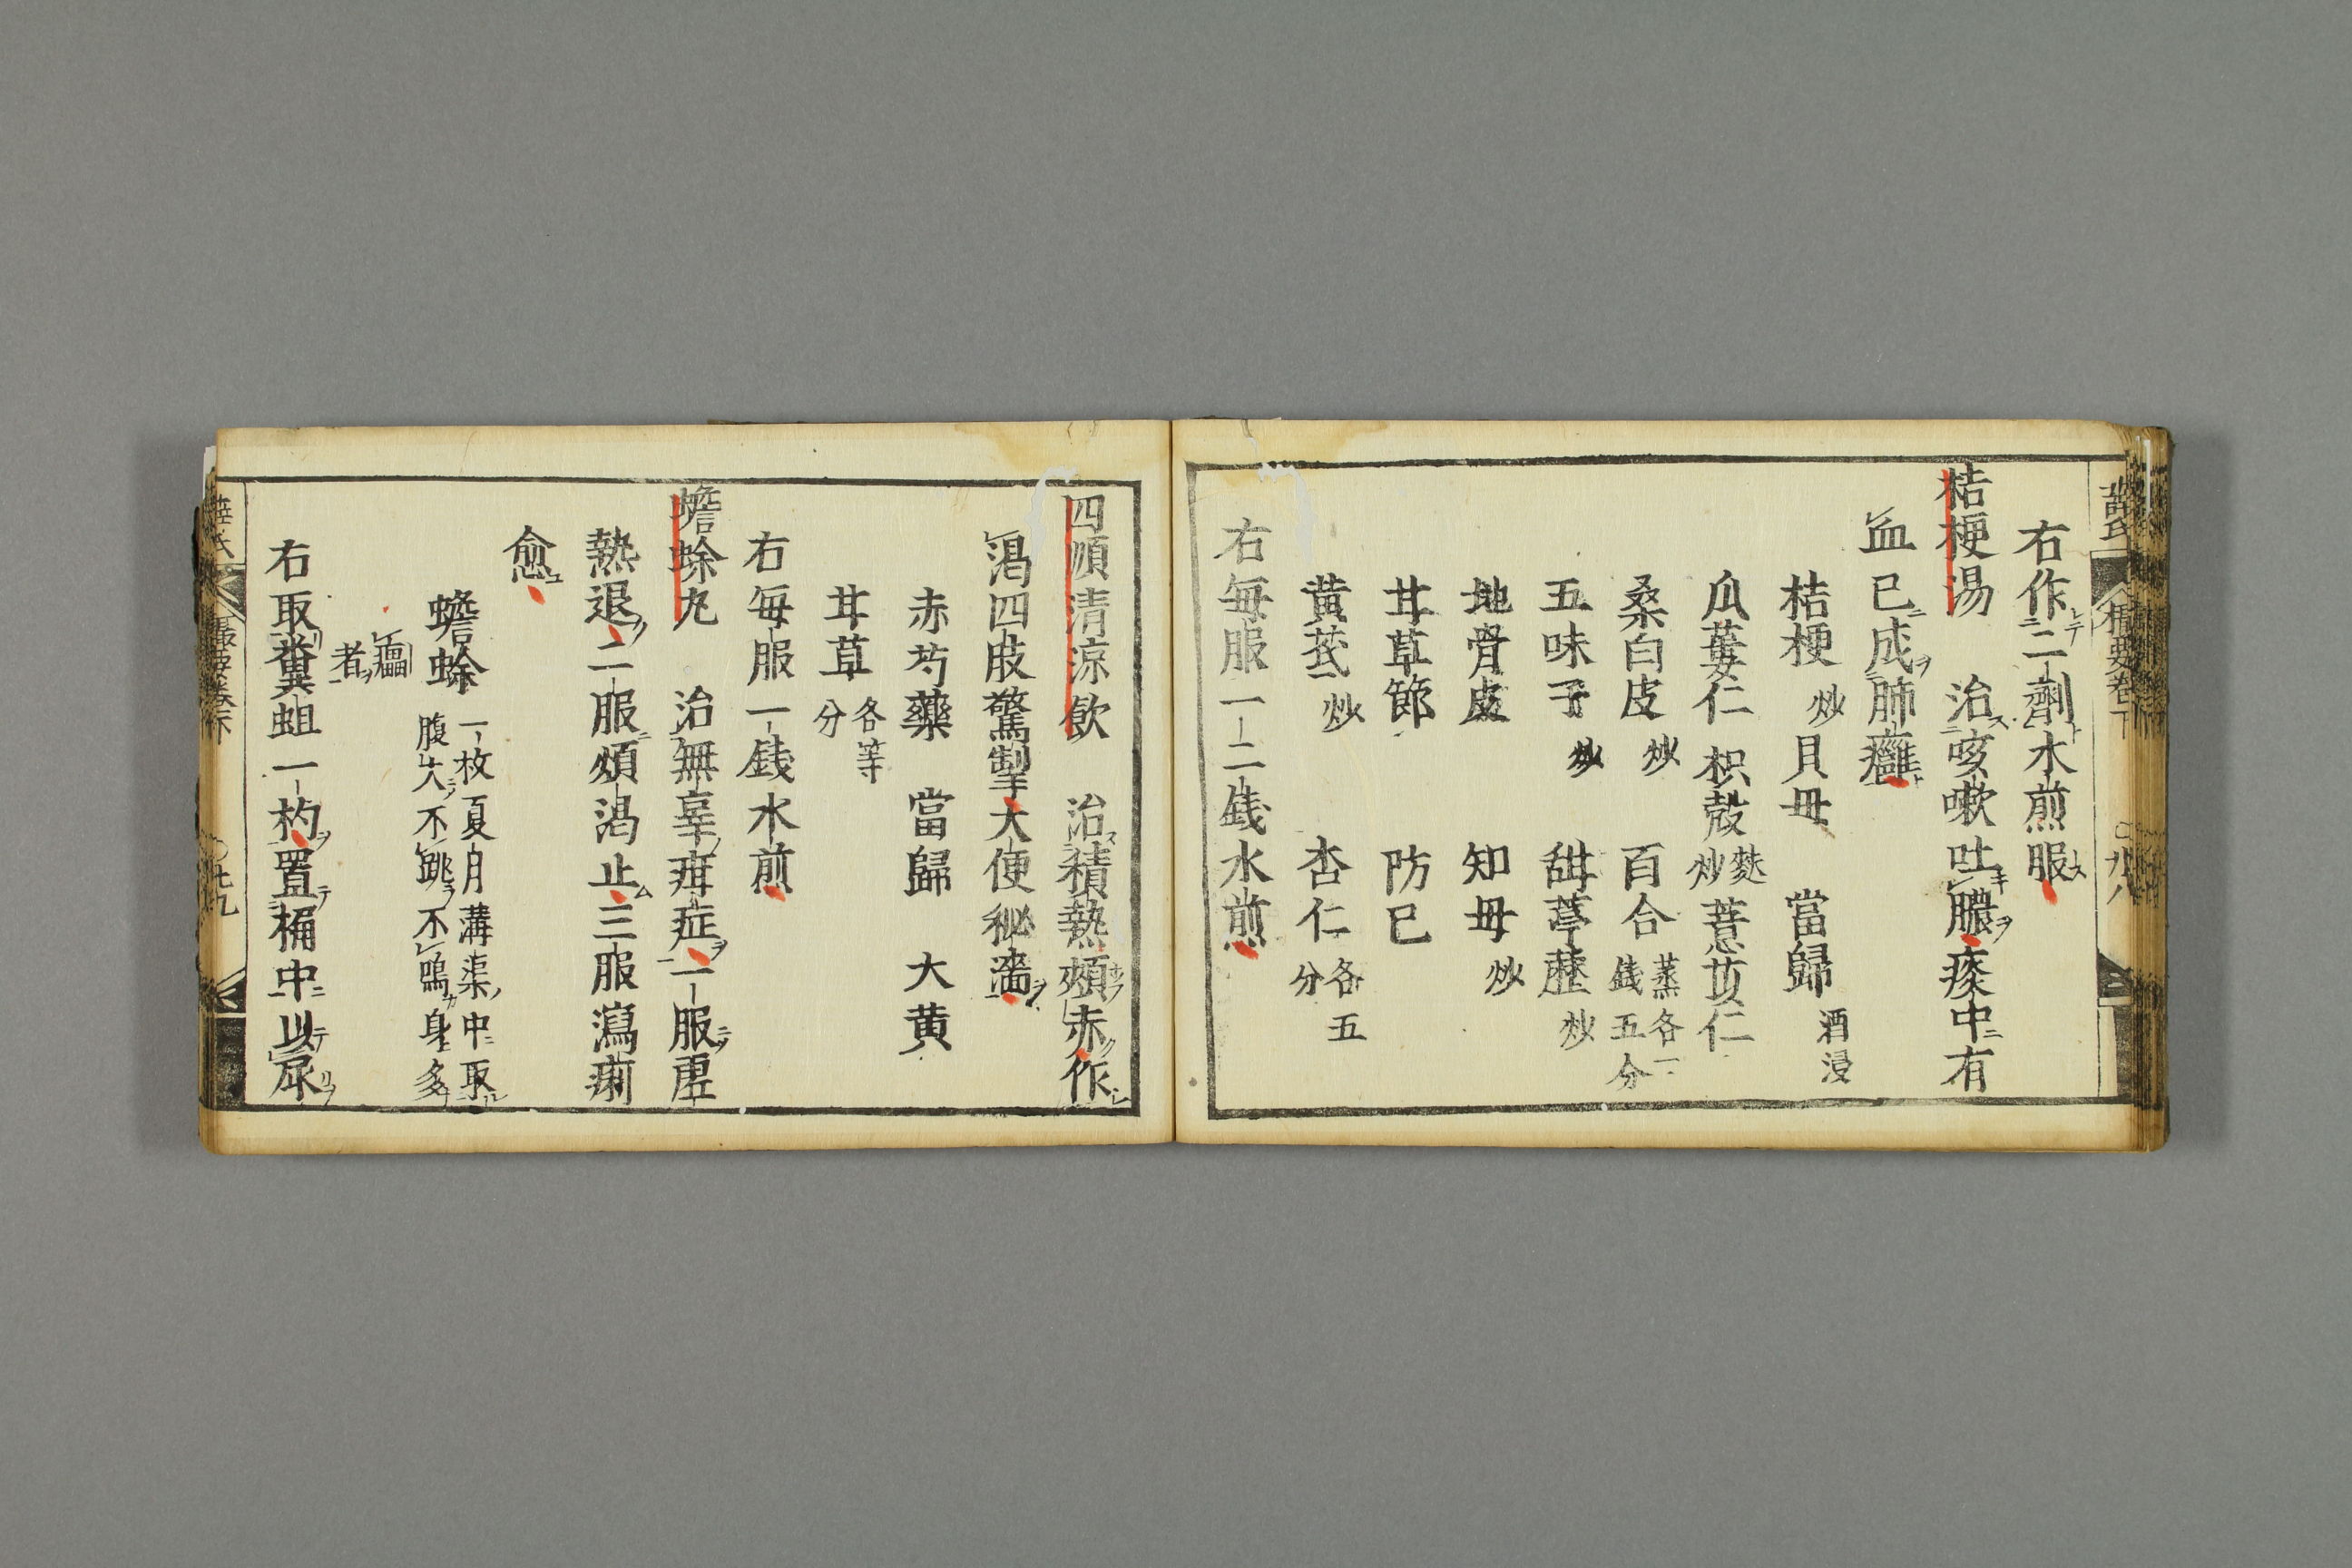 右作二劑水煎服
桔梗湯 治咳嗽吐膿痰中有
血已成肺癰
桔梗炒 貝母 當歸酒浸
瓜蔞仁 枳殼麩炒 薏苡仁
桑白皮炒 百合蒸各一錢五分
五味子炒 甜葶藶炒
地骨皮 知母炒
甘草節 防已
黃芪炒 杏仁各五分
右每服一二錢水煎
四順清涼飲 治積熱頰赤作
渴四肢驚掣大便秘濇
赤芍藥 當歸 大黃
甘草各等分
右每服一錢水煎
蟾蜍丸 治無辜疳症一服虛
熱退二服煩渴止三服瀉痢
愈
蟾蜍一枚夏月溝渠中取
腹大不跳不鳴身多
者
右取糞蛆一杓置桶中以尿